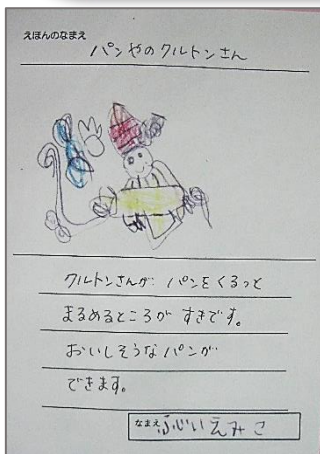 えほんのなまえ
パンやのクルトンさん
クルトンさんが パンをくるっと
まるめるところが すきです。
おいしそうなパンが
できます。
なまえ ふじいえみこ